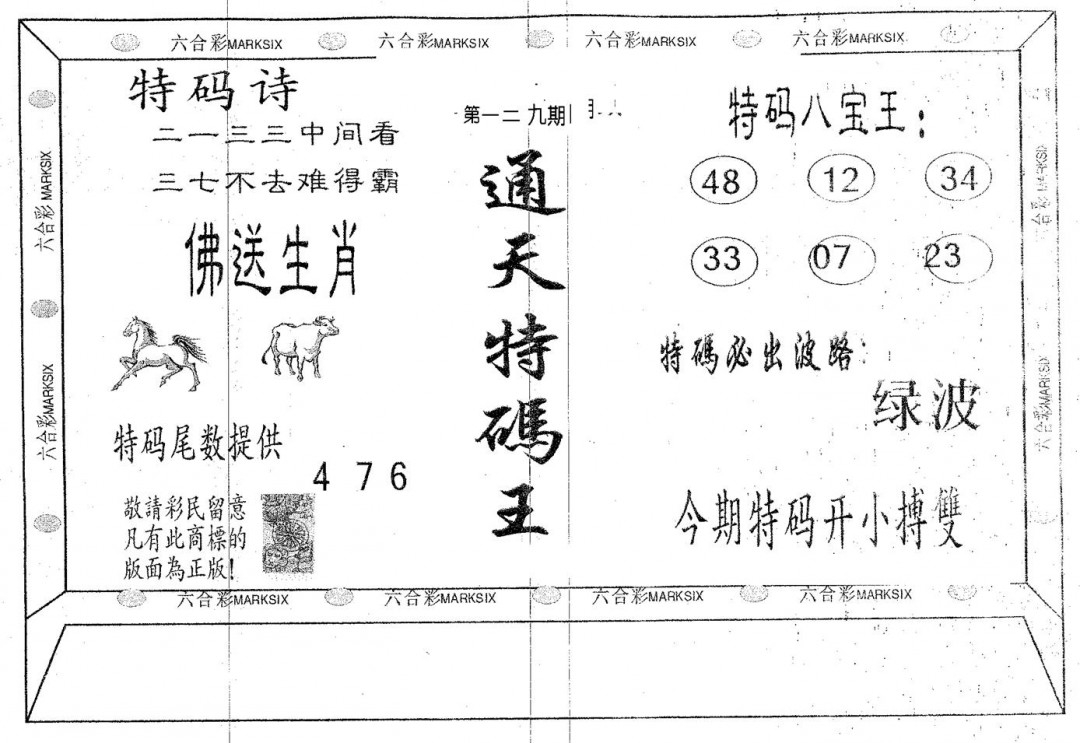 六合彩MARKSIX 六合彩MARKSIX 六合彩MARKSIX 六合彩MARKSIX
特码诗
二一三三中间看
三七不去难得霸
佛送生肖
特码尾数提供
4 7 6
敬請彩民留意
凡有此商標的
版面為正版!
第一二九期
通天特碼王
特码八宝王:
48 12 34
33 07 23
特碼必出波路:
绿波
今期特码开小搏雙
六合彩MARKSIX
六合彩MARKSIX
六合彩MARKSIX
六合彩MARKSIX
六合彩MARKSIX 六合彩MARKSIX 六合彩MARKSIX 六合彩MARKSIX